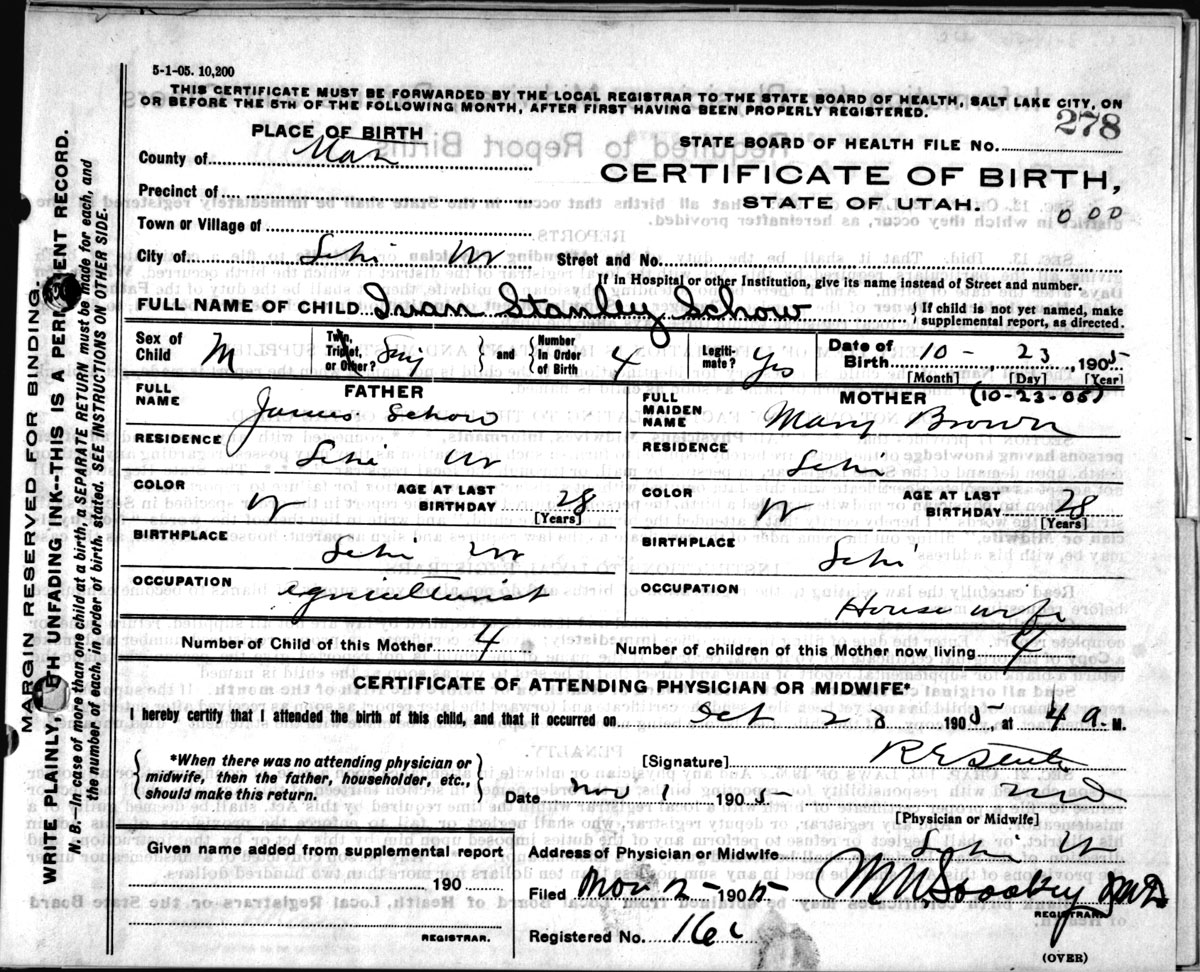 5-1-05. 10,200
THIS CERTIFICATE MUST BE FORWARDED BY THE LOCAL REGISTRAR TO THE STATE BOARD OF HEALTH, SALT LAKE CITY, ON
OR BEFORE THE 5TH OF THE FOLLOWING MONTH, AFTER FIRST HAVING BEEN PROPERLY REGISTERED.
278
PLACE OF BIRTH
STATE BOARD OF HEALTH FILE No.
County of
CERTIFICATE OF BIRTH,
Precinct of
STATE OF UTAH.
000
Town or Village of
City of Lehi Street and No.
If in Hospital or other Institution, give its name instead of Street and number.
FULL NAME OF CHILD Ivan Stanley Schow { If child is not yet named, make supplemental report, as directed.
Sex of Child M Twin, Triplet, or Other? Sing } and { Number In Order of Birth 4 Legitimate? Yes Date of Birth 10 - 23, 1905
[Month] [Day] [Year]
FATHER
MOTHER (10-23-05)
FULL NAME James Schow
FULL MAIDEN NAME Mary Brown
RESIDENCE Lehi
RESIDENCE Lehi
COLOR W AGE AT LAST BIRTHDAY 28 [Years]
COLOR W AGE AT LAST BIRTHDAY 28 [Years]
BIRTHPLACE Lehi
BIRTHPLACE Lehi
OCCUPATION Agriculturist
OCCUPATION House wife
Number of Child of this Mother 4
Number of children of this Mother now living 4
CERTIFICATE OF ATTENDING PHYSICIAN OR MIDWIFE*
I hereby certify that I attended the birth of this child, and that it occurred on Oct 23 1905, at 4 a. M.
{ *When there was no attending physician or midwife, then the father, householder, etc., should make this return. }
[Signature]
Date Nov 1 1905
MD
[Physician or Midwife]
Given name added from supplemental report
Address of Physician or Midwife Lehi
190
Filed Nov 2 1905
REGISTRAR.
REGISTRAR.
Registered No.
(OVER)
MARGIN RESERVED FOR BINDING.
WRITE PLAINLY, WITH UNFADING INK--THIS IS A PERMANENT RECORD.
N. B.—In case of more than one child at a birth a SEPARATE RETURN must be made for each, and
the number of each, in order of birth, stated. SEE INSTRUCTIONS ON OTHER SIDE.